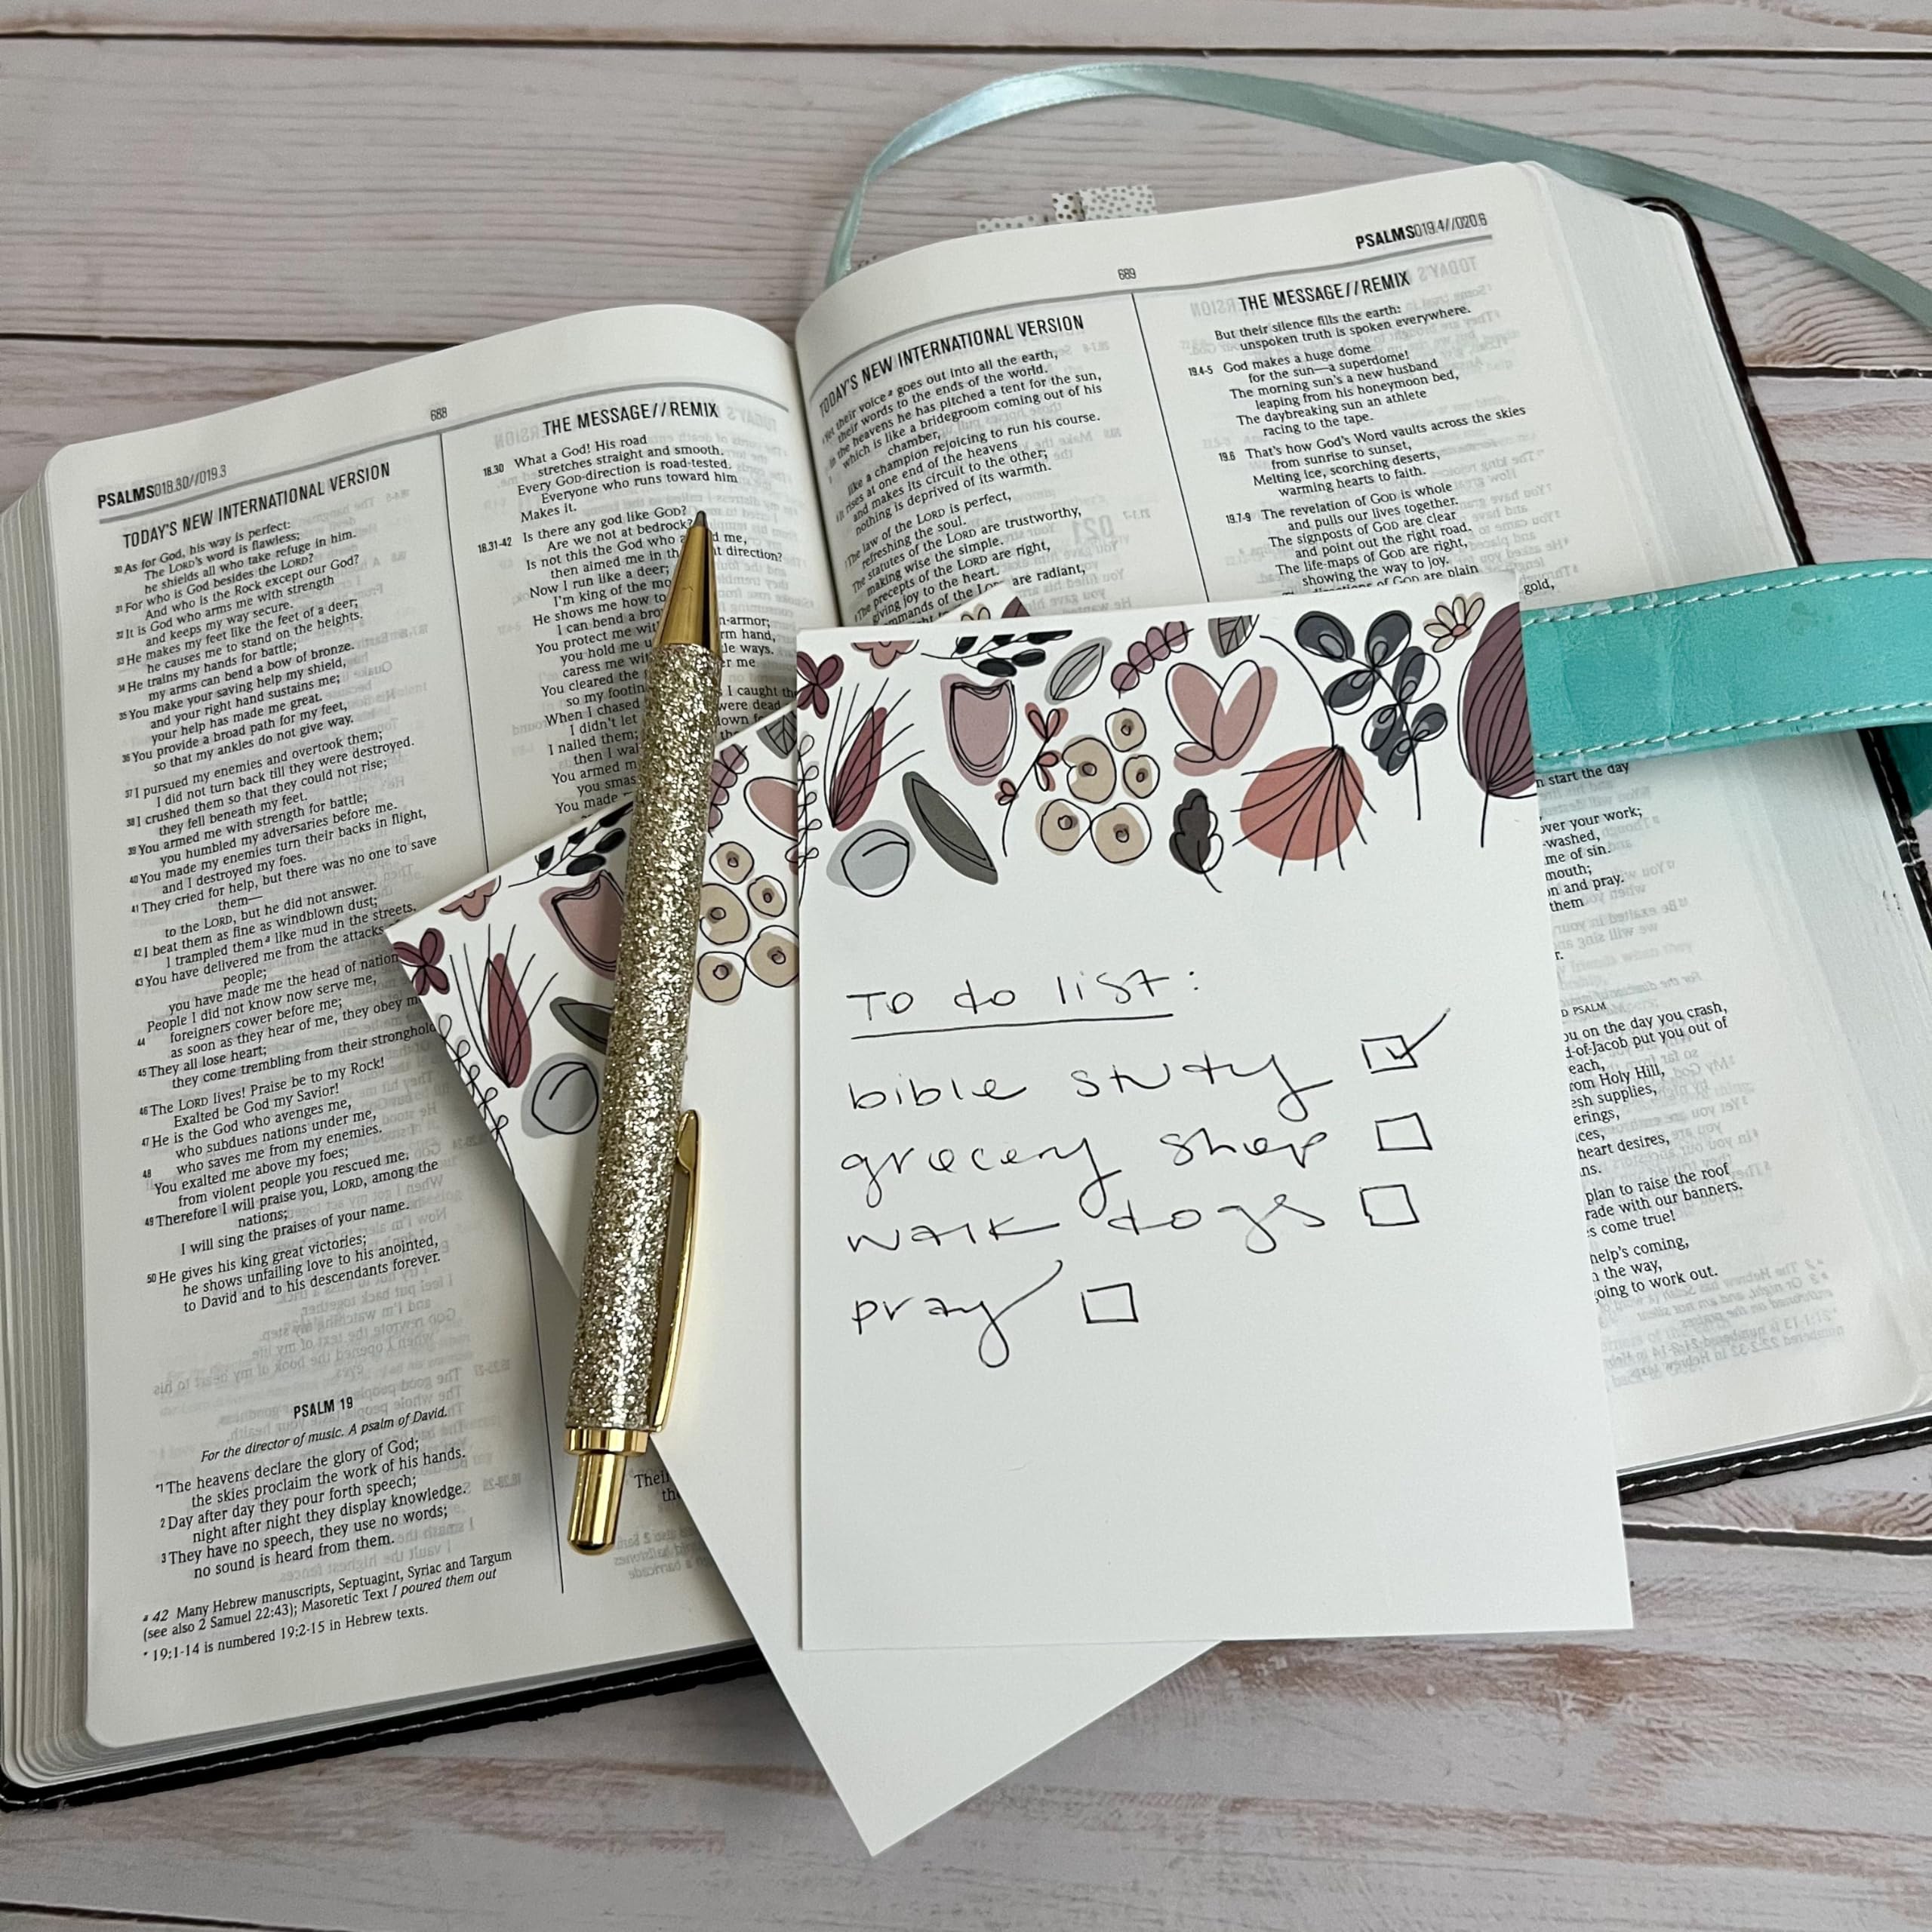 PSALMS018.30//019.3
688
TODAY'S NEW INTERNATIONAL VERSION
30 As for God, his way is perfect:
The LORD's word is flawless;
he shields all who take refuge in him.
31 For who is God besides the LORD?
And who is the Rock except our God?
32 It is God who arms me with strength
and keeps my way secure.
33 He makes my feet like the feet of a deer;
he causes me to stand on the heights.
34 He trains my hands for battle;
my arms can bend a bow of bronze.
35 You make your saving help my shield,
and your right hand sustains me;
your help has made me great.
36 You provide a broad path for my feet,
so that my ankles do not give way.
37 I pursued my enemies and overtook them;
I did not turn back till they were destroyed.
38 I crushed them so that they could not rise;
they fell beneath my feet.
39 You armed me with strength for battle;
you humbled my adversaries before me.
40 You made my enemies turn their backs in flight,
and I destroyed my foes.
41 They cried for help, but there was no one to save
them—
to the LORD, but he did not answer.
42 I beat them as fine as windblown dust;
I trampled them a like mud in the streets.
43 You have delivered me from the attacks
people;
you have made me the head of nation
People I did not know now serve me,
44 foreigners cower before me;
as soon as they hear of me, they obey m
45 They all lose heart;
they come trembling from their stronghold
46 The LORD lives! Praise be to my Rock!
Exalted be God my Savior!
47 He is the God who avenges me,
who subdues nations under me,
48 who saves me from my enemies.
You exalted me above my foes;
from violent people you rescued me.
49 Therefore I will praise you, LORD, among the
nations;
I will sing the praises of your name.
50 He gives his king great victories;
he shows unfailing love to his anointed,
to David and to his descendants forever.
PSALM 19
For the director of music. A psalm of David.
*1 The heavens declare the glory of God;
the skies proclaim the work of his hands.
2 Day after day they pour forth speech;
night after night they display knowledge.
3 They have no speech, they use no words;
no sound is heard from them.
a 42 Many Hebrew manuscripts, Septuagint, Syriac and Targum
(see also 2 Samuel 22:43); Masoretic Text I poured them out
* 19:1-14 is numbered 19:2-15 in Hebrew texts.
THE MESSAGE//REMIX
18.30 What a God! His road
stretches straight and smooth.
Every GOD-direction is road-tested.
Everyone who runs toward him
Makes it.
18.31-42 Is there any god like GOD?
Are we not at bedrock?
Is not this the God who a d me,
then aimed me in th t direction?
Now I run like a deer;
I'm king of the mo
He shows me how to
I can bend a bro
You protect me wit n-armor;
you hold me u rm hand,
caress me wi le ways.
You cleared the er me
so my footin
When I chased I caught the
I didn't let were dead
I nailed them; down
then I wal
You armed m
you smas
You made
Their
th
689
PSALMS019.4//020.6
TODAY'S NEW INTERNATIONAL VERSION
their voice a goes out into all the earth,
their words to the ends of the world.
the heavens he has pitched a tent for the sun,
which is like a bridegroom coming out of his
chamber,
like a champion rejoicing to run his course.
rises at one end of the heavens
and makes its circuit to the other;
nothing is deprived of its warmth.
The law of the LORD is perfect,
refreshing the soul.
The statutes of the LORD are trustworthy,
making wise the simple.
The precepts of the LORD are right,
giving joy to the heart.
are radiant,
THE MESSAGE//REMIX
But their silence fills the earth:
unspoken truth is spoken everywhere.
19.4-5 God makes a huge dome
for the sun—a superdome!
The morning sun's a new husband
leaping from his honeymoon bed,
The daybreaking sun an athlete
racing to the tape.
19.6 That's how God's Word vaults across the skies
from sunrise to sunset,
Melting ice, scorching deserts,
warming hearts to faith.
19.7-9 The revelation of GOD is whole
and pulls our lives together.
The signposts of GOD are clear
and point out the right road.
The life-maps of GOD are right,
showing the way to joy.
of GOD are plain
gold,
start the day
over your work;
-washed,
me of sin.
mouth;
n and pray.
them
r.
PSALM
ou on the day you crash,
d-of-Jacob put you out of
each,
rom Holy Hill,
esh supplies,
erings,
ces,
heart desires,
ns.
plan to raise the roof
rade with our banners.
s come true!
help's coming,
the way,
going to work out.
To do list:
bible study
grocery shop
walk dogs
pray